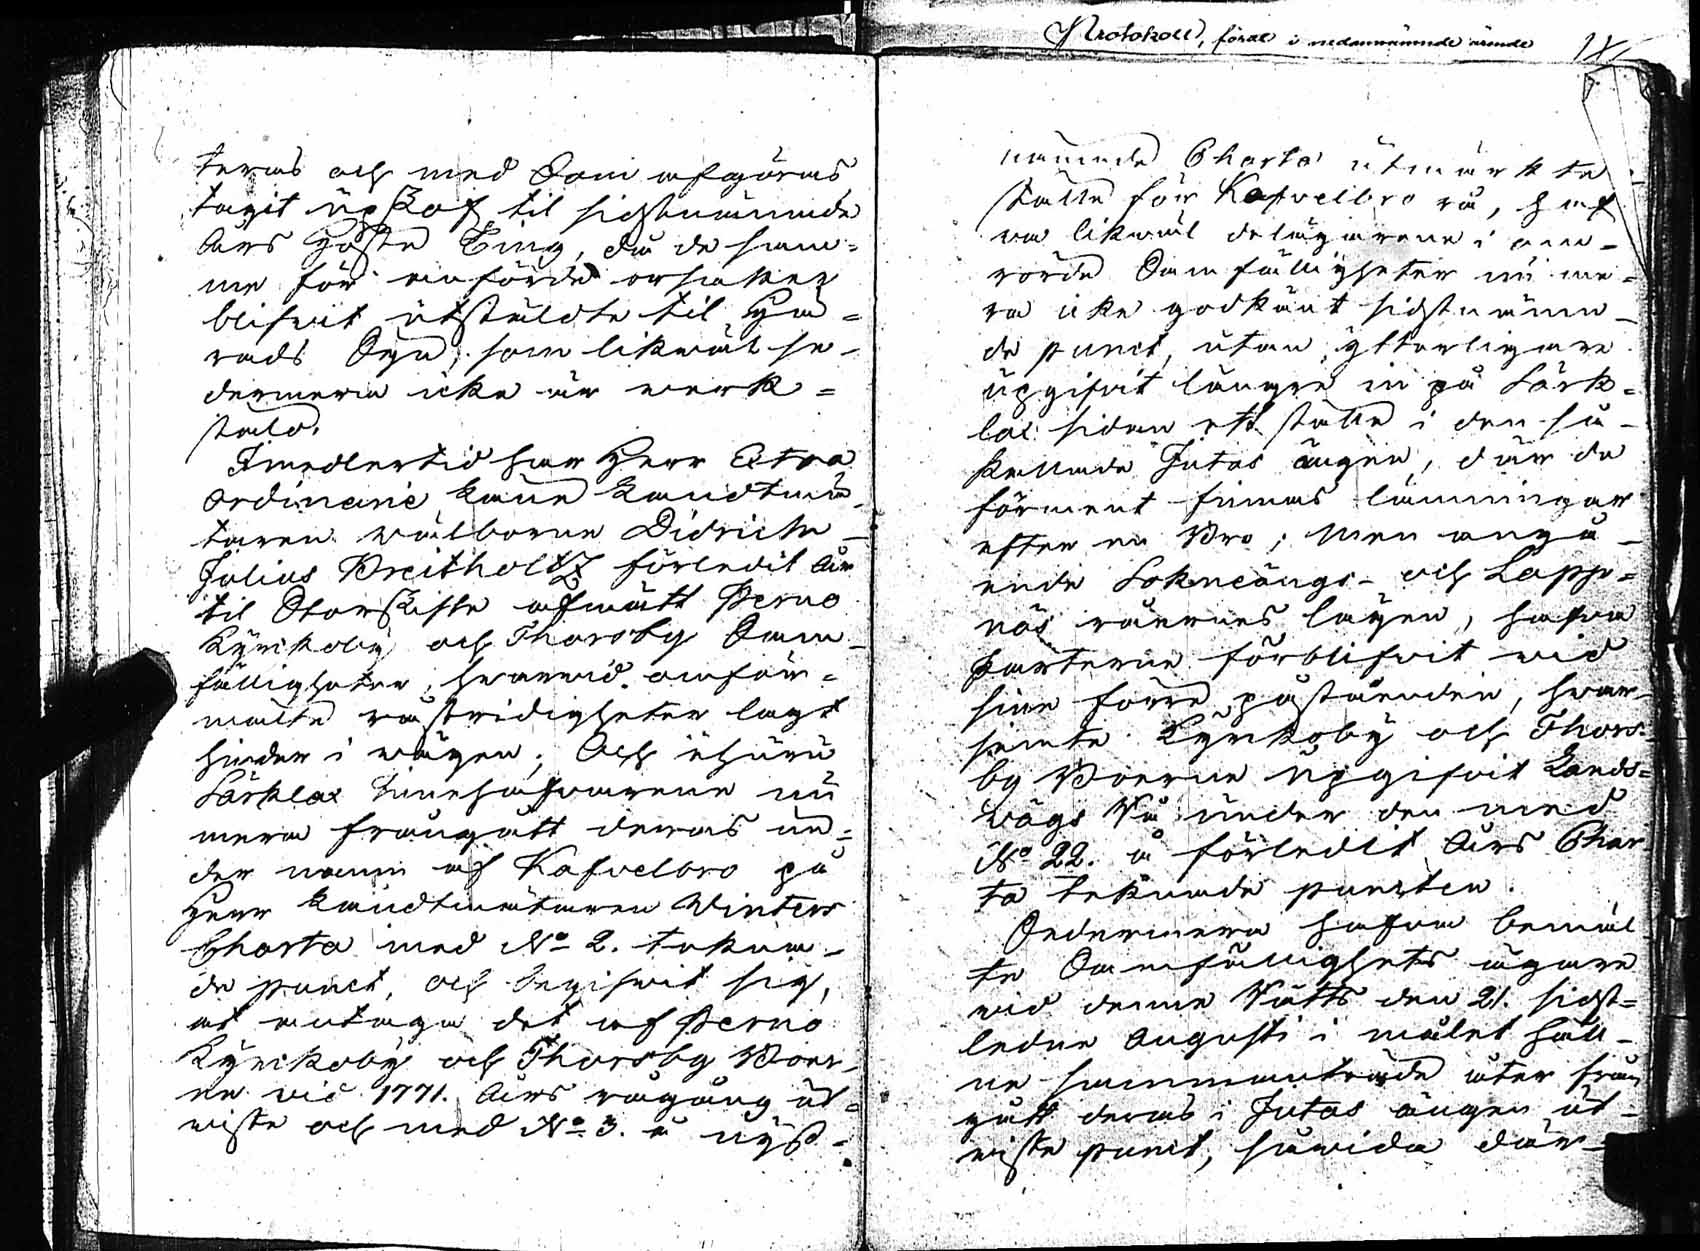 Protokoll, fördt i nedannämnde ärende
teras och med dom afgöras,
tagit upskof til sidstnämnde
Års Höste Ting, då de sam-
me för anförde orsaker
blifvit utstälde til Hä-
rads Syn, som likwäl se-
dermera icke är werk-
stäld.
Imedlertid har Herr Extra
ordinarie Landtmä-
taren wälborne Didrich
Julius Breitholtz förledit År
til Storskifte afmätt Perno
Kyrckoby och Thorsby Sam-
fälligheter, hwarvid omför-
mälte råstridigheter lagt
hinder i wägen; Och ehuru
Särklax Innehafvarene nu
mera frångått deras un-
der namn af Kafvelbro på
Herr Landtmätaren Winters
Charta med No 2. tekna-
de punct, och begifvit sig,
at antaga det af Perno
Kyrckoby och Thorsby Boer-
ne vid 1771. Års rågång ut-
viste och med No 3. å nyss-
nämnde Charta utmärkte
ställe för Kafvelbro rå, haf
va likwäl delägarene i om-
rörde Samfälligheter nu me-
ra icke godkänt sidstnämn-
de punct, utan ytterligare
upgifvit längre in på Särk-
lax sidan ett ställe i den så
kallade Jutas ängen, där de
förment finnas lämningar
efter en Bro; Men angå-
ende Sokneängs- och Lapp-
näs råernes lägen, hafva
Parterne förblifvit vid
sine förre påståenden, hwar-
jemte Kyrkoby och Thors-
by Boerne upgifvit Lands-
wägs Rå under den med
No 22. å förledit Års Char
ta teknade puncten.
Sedermera hafva bemäl
te Samfällighets ägare
vid denne Rätts den 21. sidst-
ledne Augusti i målet håll-
ne sammanträde åter från
gått deras i Jutas ängen ut-
viste punct, såwida där-